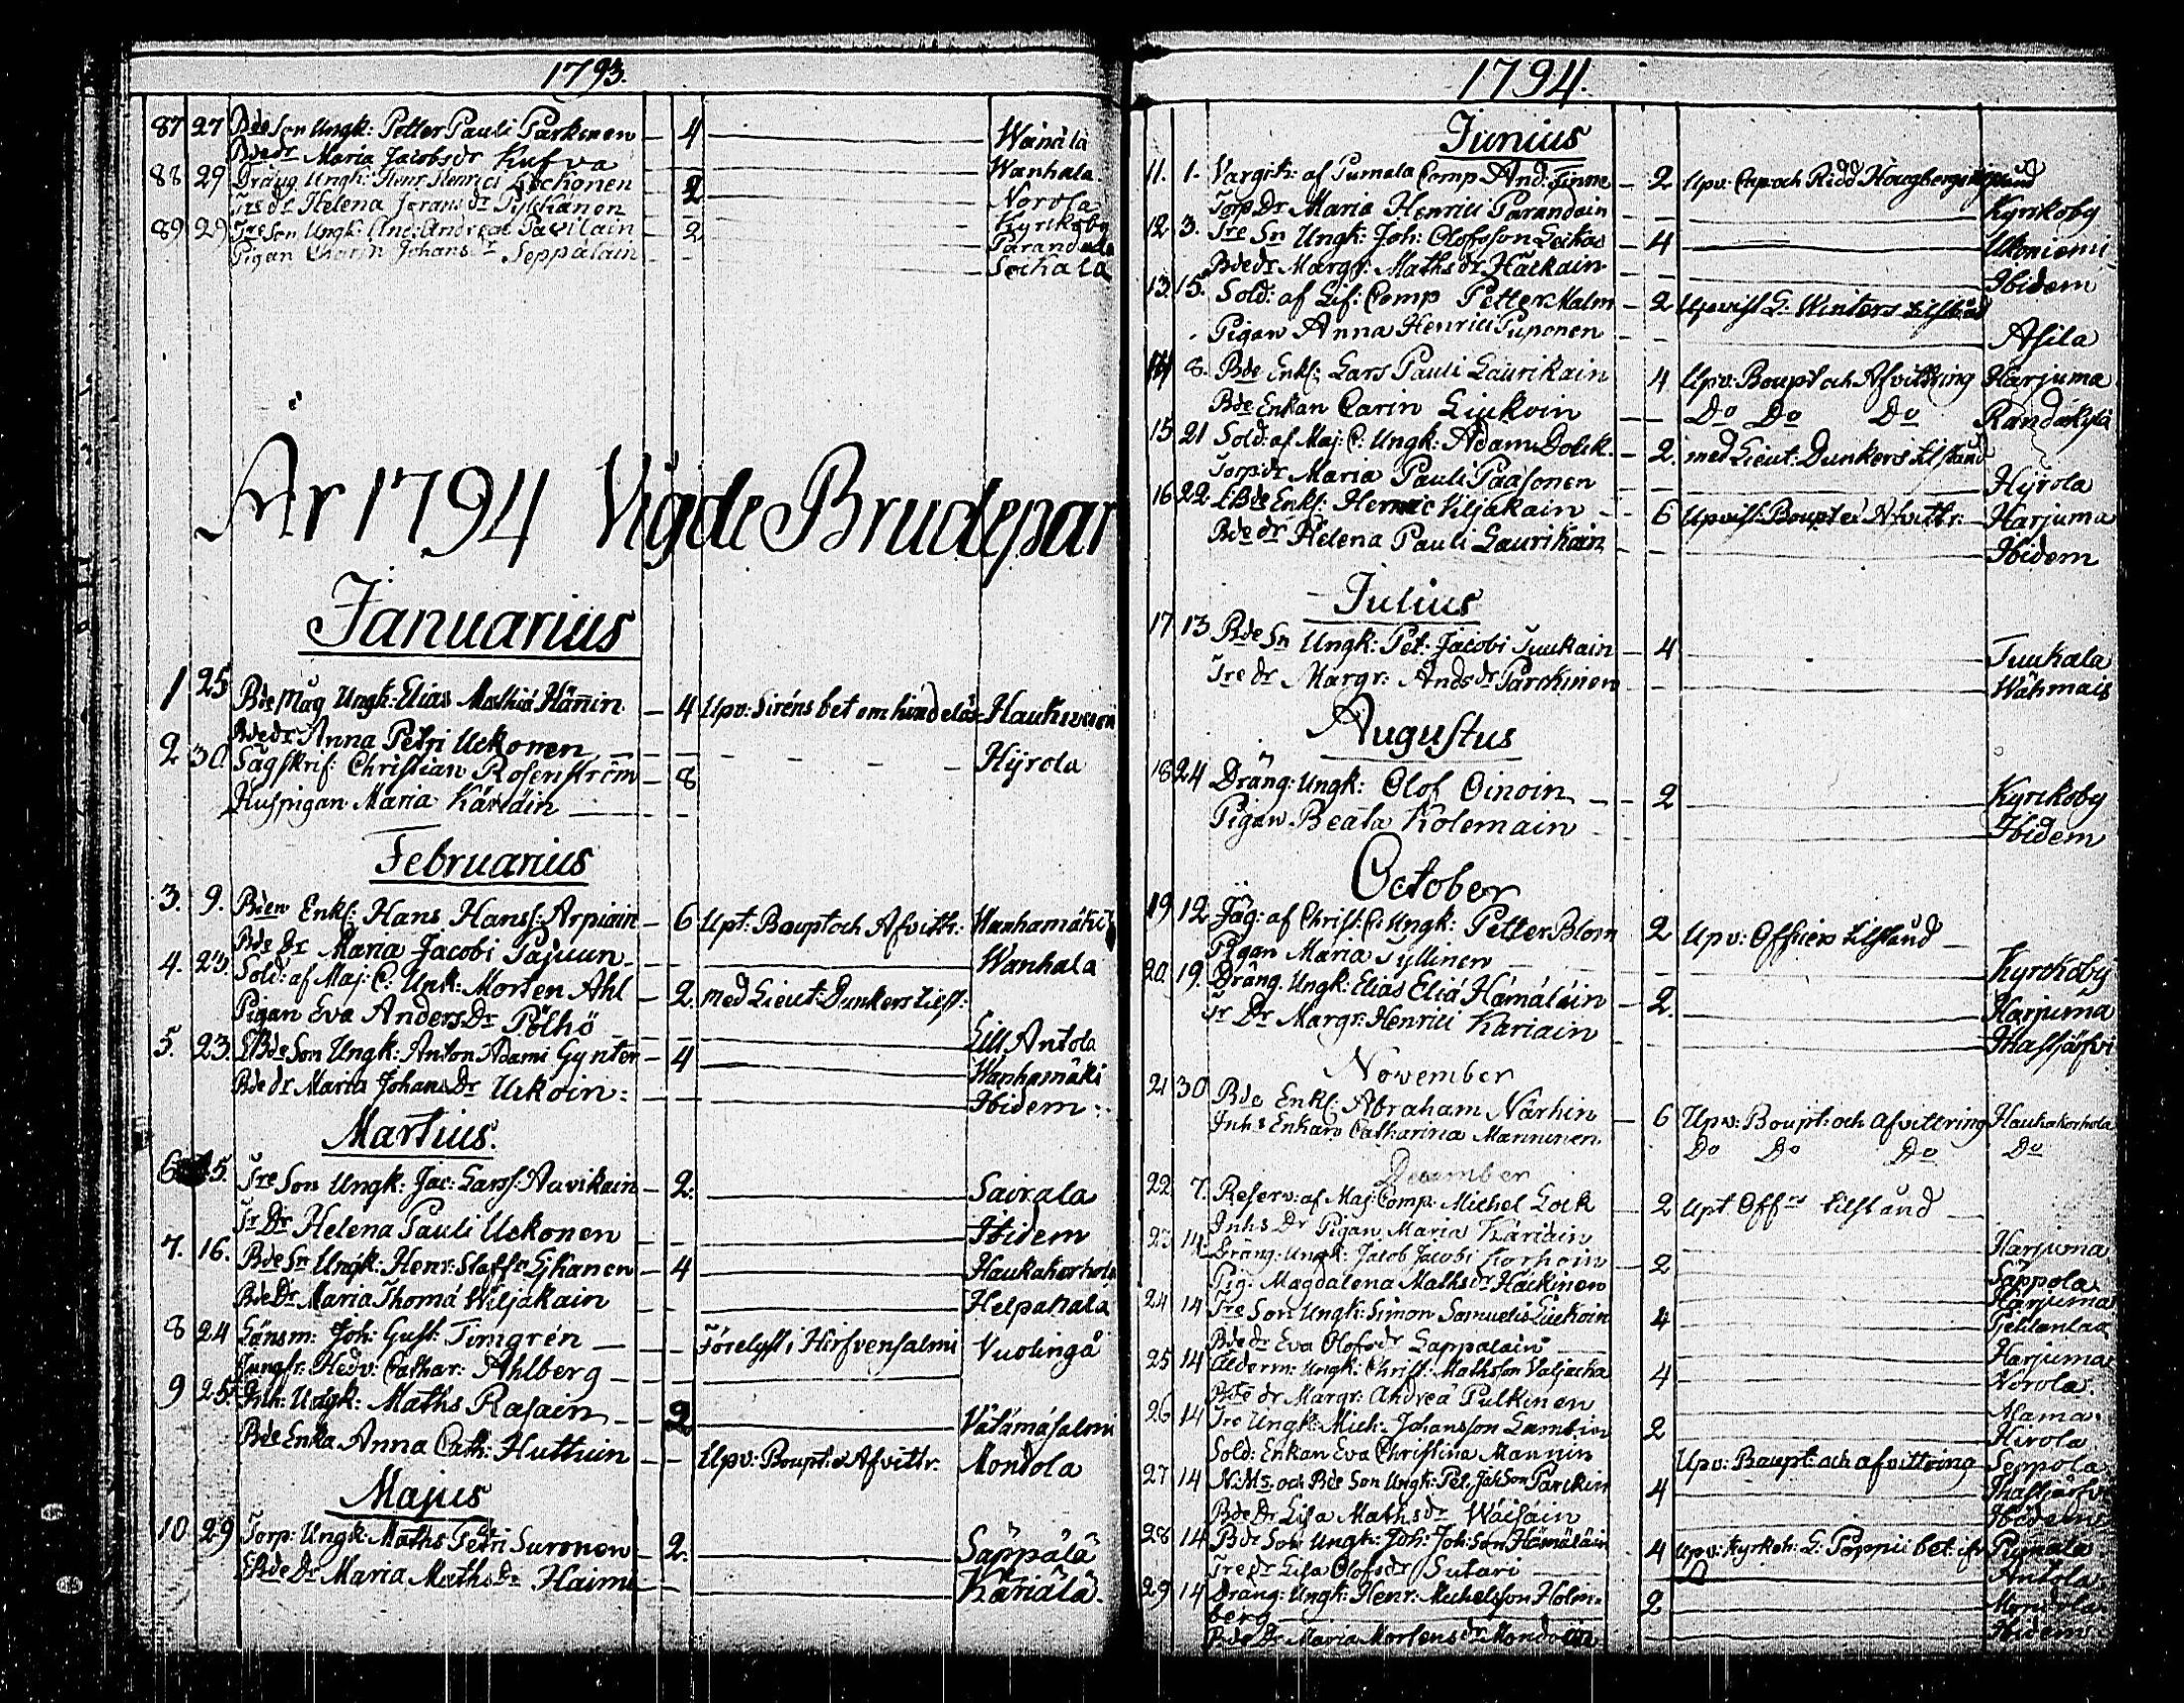 1793.
87 27 Bde Son Ungk: Petter Pauli Parkinen — 4 — Wänälä
Bde dr Maria Jacobs dr Kufva — Wanhala
88 29 Dräng Ungk: Henr. Henrici Leckonen — 2 — Norola
Tre dr Helena Jörans dr Pylckänen — Kyrkoby
89 29 Tre Son Ungk: And: Andreæ Pavilain — 2 — Parandala
Pigan Charin Johans dr Seppäläin — Sockala
År 1794 Vigde Brudepar
Januarius
1 25 Bde Måg Ungk: Elias Mathiæ Hännin — 4 Upv: Sirens bet om hindelös Haukivuori
Bde dr Anna Petri Uckonen — Hyrola
2 30 Sågskrif: Christian Rosenström — 8
Huspigan Maria Käriäin —
Februarius
3. 9. Bden Enkl: Hans Hanss: Arpiain — 6 Upt: Boupt och Afvittr: Wanhamäki
Bde Dr Maria Jacobi Pajuun — Wanhala
4. 23. Sold: af Maj: C: Unk: Morten Ahl — 2. med Lieut: Dunkers tilst:
Pigan Eva Anders Dr Pölhö — Lill Antola
5. 23. Bde Son Ungk: Anton Adami Gynten — 4 — Wanhamäki
Bde dr Maria Johans Dr Uckoin — Ibidem
Martius.
6 15. Tre Son Ungk: Jac: Larss: Auvikain — 2. — Sairala
Tr Dr Helena Pauli Uckonen — Ibidem
7. 16. Bde Sn Ungk: Henr: Staffn Ghanen — 4 — Haukakorhola
Bde Dr Maria Thomæ Wiljakain — Helpahala
8 24 Länsm: Joh: Gust: Timgrén — Förelyst i Hirfvensalmi Vuolingå
Jungfr: Hedv: Cathar: Ahlberg —
9 25. Inh: Ungk: Maths Rasain — 2 — Vätämäsalmi
Bde Enka Anna Cath: Huttuin — Upv: Boupt: o Afvittr: Montola
Majus
10 29 Torp: Ungk: Maths Petri Suronen — 2. — Säppälä
Bde Dr Maria Maths Dr Haimi — Käriälä.
1794.
Junius
11. 1. Vargit: af Pumala Comp And: Finne — 2 Upv: Cap och Ridd Hougbergs tilstånd
Torp Dr Maria Henrici Parandain — Kyrkoby
12 3. Tre Sn Ungk: Joh: Olofsson Leikas — 4 — Ukoniemi
Bde dr Margr: Maths dr Häckain — Ibidem
13 15. Sold: af Lif: Comp Petter Malm — 2 Upvist G: Winters tilstånd
Pigan Anna Henrici Puponen — Asila
14 8. Bde Enkl: Lars Pauli Laurikain 4 Upv: Boupt och Afvittring Harjuma
Bde Enkan Carin Liukoin — Do Do Do Randakylä
15 21 Sold: af Maj: C: Ungk: Adam Dolck. — 2. med Lieut: Dunkers tilstånd
Torp: dr Maria Pauli Paasonen — Hyrola
16 22 Bde Enkl: Henric Viljakain — 6 Upvist: Boupt o Afvittr: — Harjuma
Bde dr Helena Pauli Laurikain — Ibidem
Julius
17 13 Bde Sn Ungk: Pet: Jacobi Tuukain — 4 — Tuukala
Tre dr Margr: Ands dr Parckinen — Wähmais
Augustus
18 24 Dräng: Ungk: Olof Oinoin — 2 — Kyrckoby
Pigan Beata Kolemain — Ibidem
October
19 12 Jäg: af Christ: C: Ungk: Petter Blom 2 Upv: Officers tilstånd —
Pigan Maria Tyllinen — Kyrckoby
20. 19. Dräng. Ungk: Elias Eliæ Hämäläin — 2. — Harjuma
Tr Dr Margr: Henrici Käriain — Thastjärfvi
November
21 30 Bde Enkl: Abraham Närhin — 6 Upv: Boupt: och afvittring Haukakorhola
Inhs Enkan Catharina Manninen Do Do Do Do
December
22 7. Reserv: af Maj: Comp: Michel Lock 2 Upt Offrs tilstånd —
Inhs Dr Pigan Maria Käriäin — Harjuma
23 14 Dräng. Ungk: Jacob Jacobi Korhoin — 2 — Säppola
Pig: Magdalena Maths dr Häckinen — Harjuma
24 14 Tre Son Ungk: Simon Samuelis Liukoin 4
Bde dr Eva Olofs dr Lappalain — Harjuma
25 14 Ålderm: Ungk: Christ: Mathsson Valjacka 4 — Norola.
Bde dr Margr: Andreæ Pulkinen — Mama
26 14 Tre Ungk: Mich: Johansson Lambin 2 — Hirola
Sold: Enkan Eva Christina Mannin Upv: Boupt: och afvittring Seppola
27 14 N.Ms. och Bde Son Ungk: Pet: Jac Son Parckin 4 — Thastjärfvi
Bde Dr Lisa Maths dr Wäisäin — Ibidem
28 14 Bde Son Ungk: Joh: Joh: Son Hämäläin 4 Upv: Kyrkoh: G: Poppii bet: ifr Pumala
Tre dr Lisa Olofs dr Sutari — Antola
29 14 Dräng: Ungk: Henr: Michelsson Holm= 2 — Mondola
berg
Bde Dr Maria Mortens dr Mondoin — Ibidem